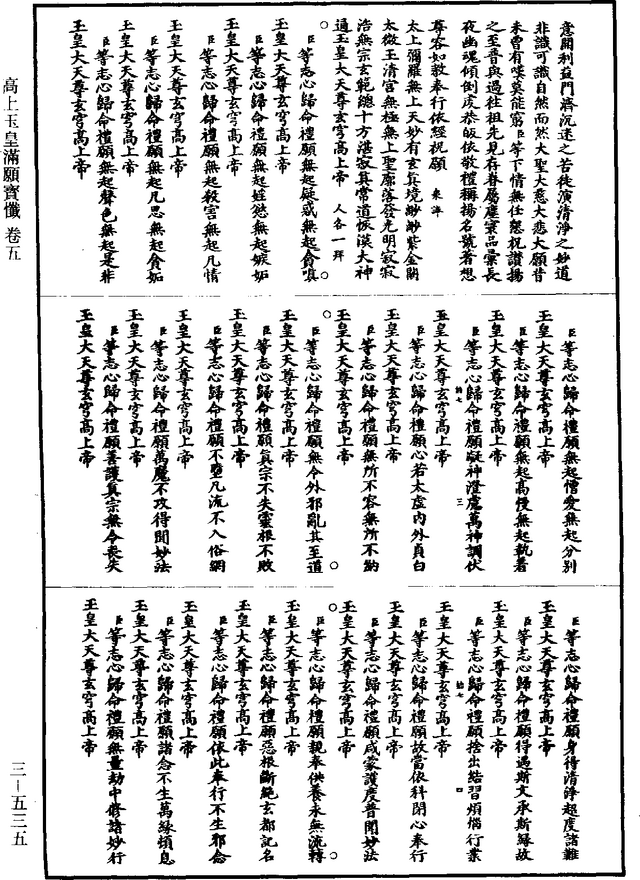 意開利益門濟沉迷之苦徒演清淨之妙道
非識可識自然而然大聖大慈大悲大願昔
未曾有嘆莫能窮臣等下情無任懇祝讚揚
之至普與過往祖先見存眷屬塵寰品彙長
夜幽魂傾倒虔恭皈依敬禮稱揚名號著想
尊容如教奉行依經祝願
太上彌羅無上天妙有玄真境渺渺紫金闕
太微玉清宮無極無上聖廓落發光明寂寂
浩無宗玄範總十方湛寂真常道恢漠大神
通玉皇大天尊玄穹高上帝 人各一拜
臣等志心歸命禮願無起疑惑無起貪嗔
玉皇大天尊玄穹高上帝
臣等志心歸命禮願無起婬慾無起嫉妬
玉皇大天尊玄穹高上帝
臣等志心歸命禮願無起殺害無起凡情
玉皇大天尊玄穹高上帝
臣等志心歸命禮願無起凡思無起貪妬
玉皇大天尊玄穹高上帝
臣等志心歸命禮願無起聲色無起是非
玉皇大天尊玄穹高上帝
臣等志心歸命禮願無起憎愛無起分別
玉皇大天尊玄穹高上帝
臣等志心歸命禮願無起高慢無起執着
玉皇大天尊玄穹高上帝
臣等志心歸命禮願凝神澄慮萬神調伏
玉皇大天尊玄穹高上帝
三
臣等志心歸命禮願心若太虛內外貞白
玉皇大天尊玄穹高上帝
臣等志心歸命禮願無所不容無所不納
玉皇大天尊玄穹高上帝
臣等志心歸命禮願無令外邪亂其至道
玉皇大天尊玄穹高上帝
臣等志心歸命禮願真宗不失靈根不敗
玉皇大天尊玄穹高上帝
臣等志心歸命禮願不墮凡流不入俗網
玉皇大天尊玄穹高上帝
臣等志心歸命禮願萬魔不攻得聞妙法
玉皇大天尊玄穹高上帝
臣等志心歸命禮願善護真宗無令喪失
玉皇大天尊玄穹高上帝
臣等志心歸命禮願身得清淨超度諸難
玉皇大天尊玄穹高上帝
臣等志心歸命禮願得遇斯文承斯緣故
玉皇大天尊玄穹高上帝
臣等志心歸命禮願捨出結習煩惱行業
玉皇大天尊玄穹高上帝
四
臣等志心歸命禮願故當依科閉心奉行
玉皇大天尊玄穹高上帝
臣等志心歸命禮願咸蒙護度普聞妙法
玉皇大天尊玄穹高上帝
臣等志心歸命禮願親奉供養永無流轉
玉皇大天尊玄穹高上帝
臣等志心歸命禮願惡根斷絕玄都記名
玉皇大天尊玄穹高上帝
臣等志心歸命禮願依此奉行不生邪念
玉皇大天尊玄穹高上帝
臣等志心歸命禮願諸念不生萬緣頓息
玉皇大天尊玄穹高上帝
臣等志心歸命禮願無量劫中修諸妙行
玉皇大天尊玄穹高上帝
高上玉皇滿願寶懺 卷五
三—五三五